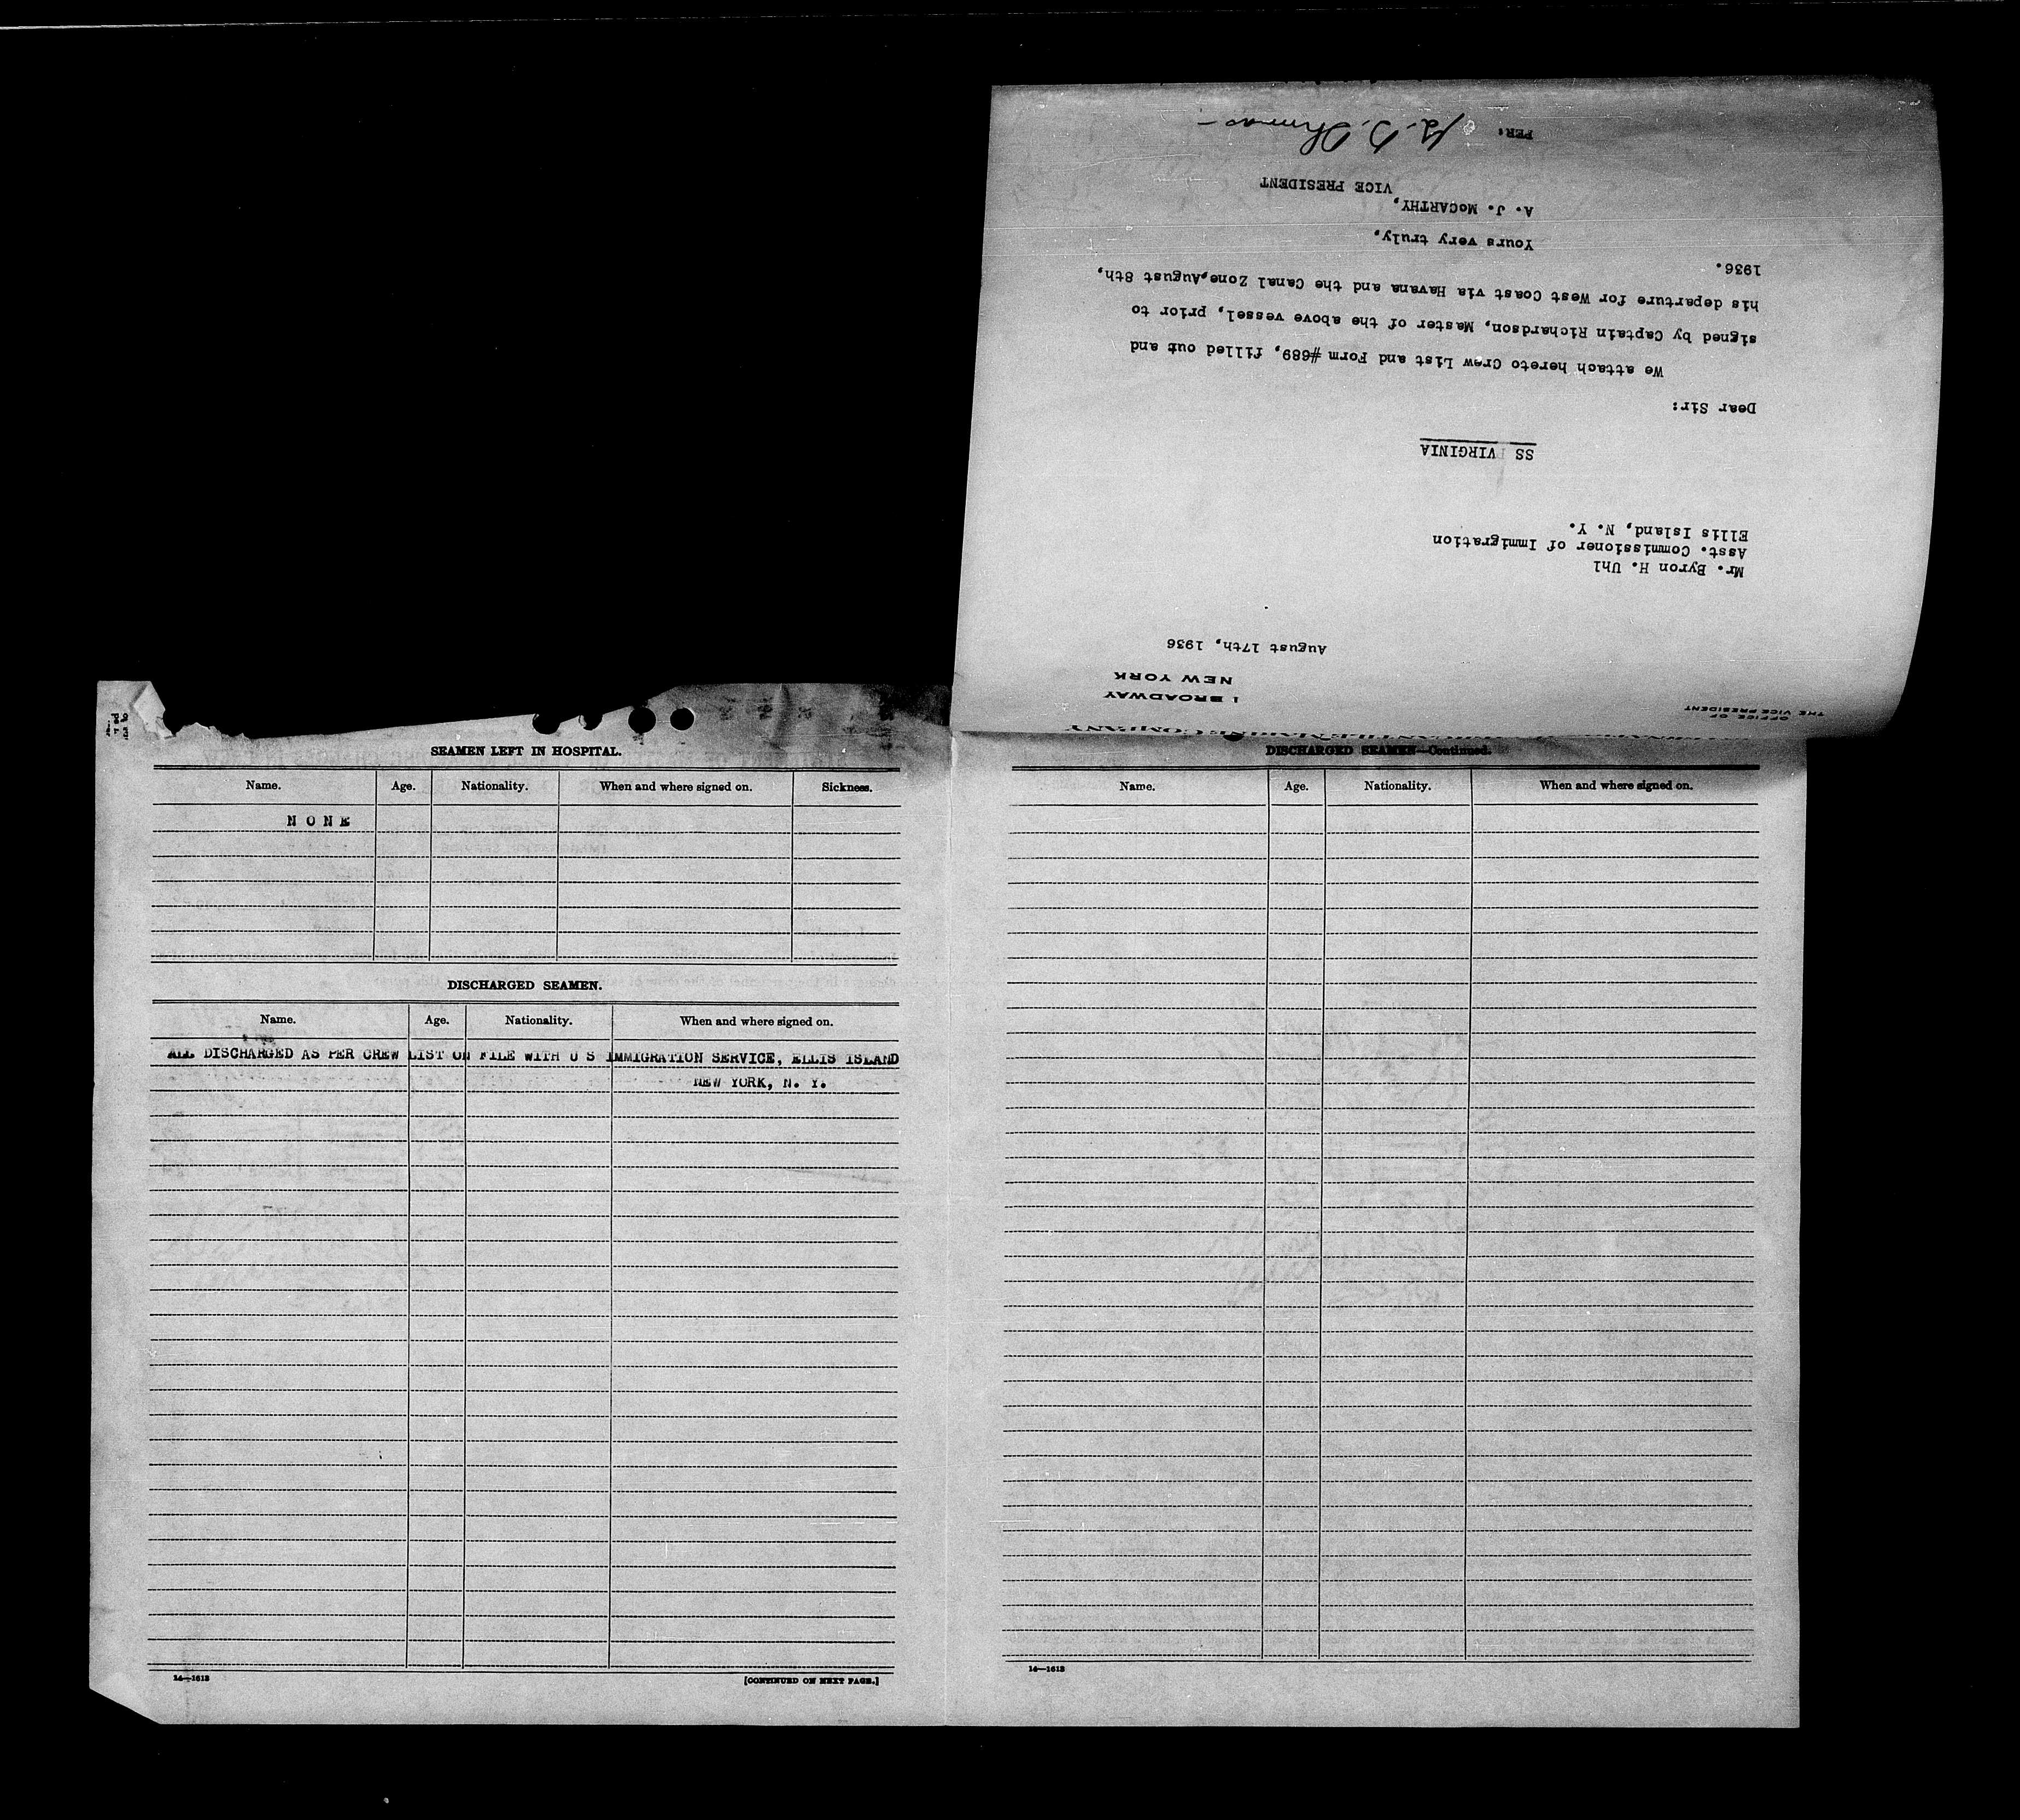 OFFICE OF
THE VICE PRESIDENT
1 BROADWAY
NEW YORK
August 17th, 1936
Mr. Byron H. Uhl
Asst. Commissioner of Immigration
Ellis Island, N. Y.
SS VIRGINIA
Dear Sir:
We attach hereto Crew List and Form #689, filled out and
signed by Captain Richardson, Master of the above vessel, prior to
his departure for West Coast via Havana and the Canal Zone,August 8th,
1936.
Yours very truly,
A. J. McCARTHY,
VICE PRESIDENT
PER:
SEAMEN LEFT IN HOSPITAL.
Name. Age. Nationality. When and where signed on. Sickness.
N O N E
DISCHARGED SEAMEN.
Name. Age. Nationality. When and where signed on.
ALL DISCHARGED AS PER CREW LIST ON FILE WITH U S IMMIGRATION SERVICE, ELLIS ISLAND
NEW YORK, N. Y.
14—1613
[CONTINUED ON NEXT PAGE.]
DISCHARGED SEAMEN—Continued.
Name. Age. Nationality. When and where signed on.
14—1613